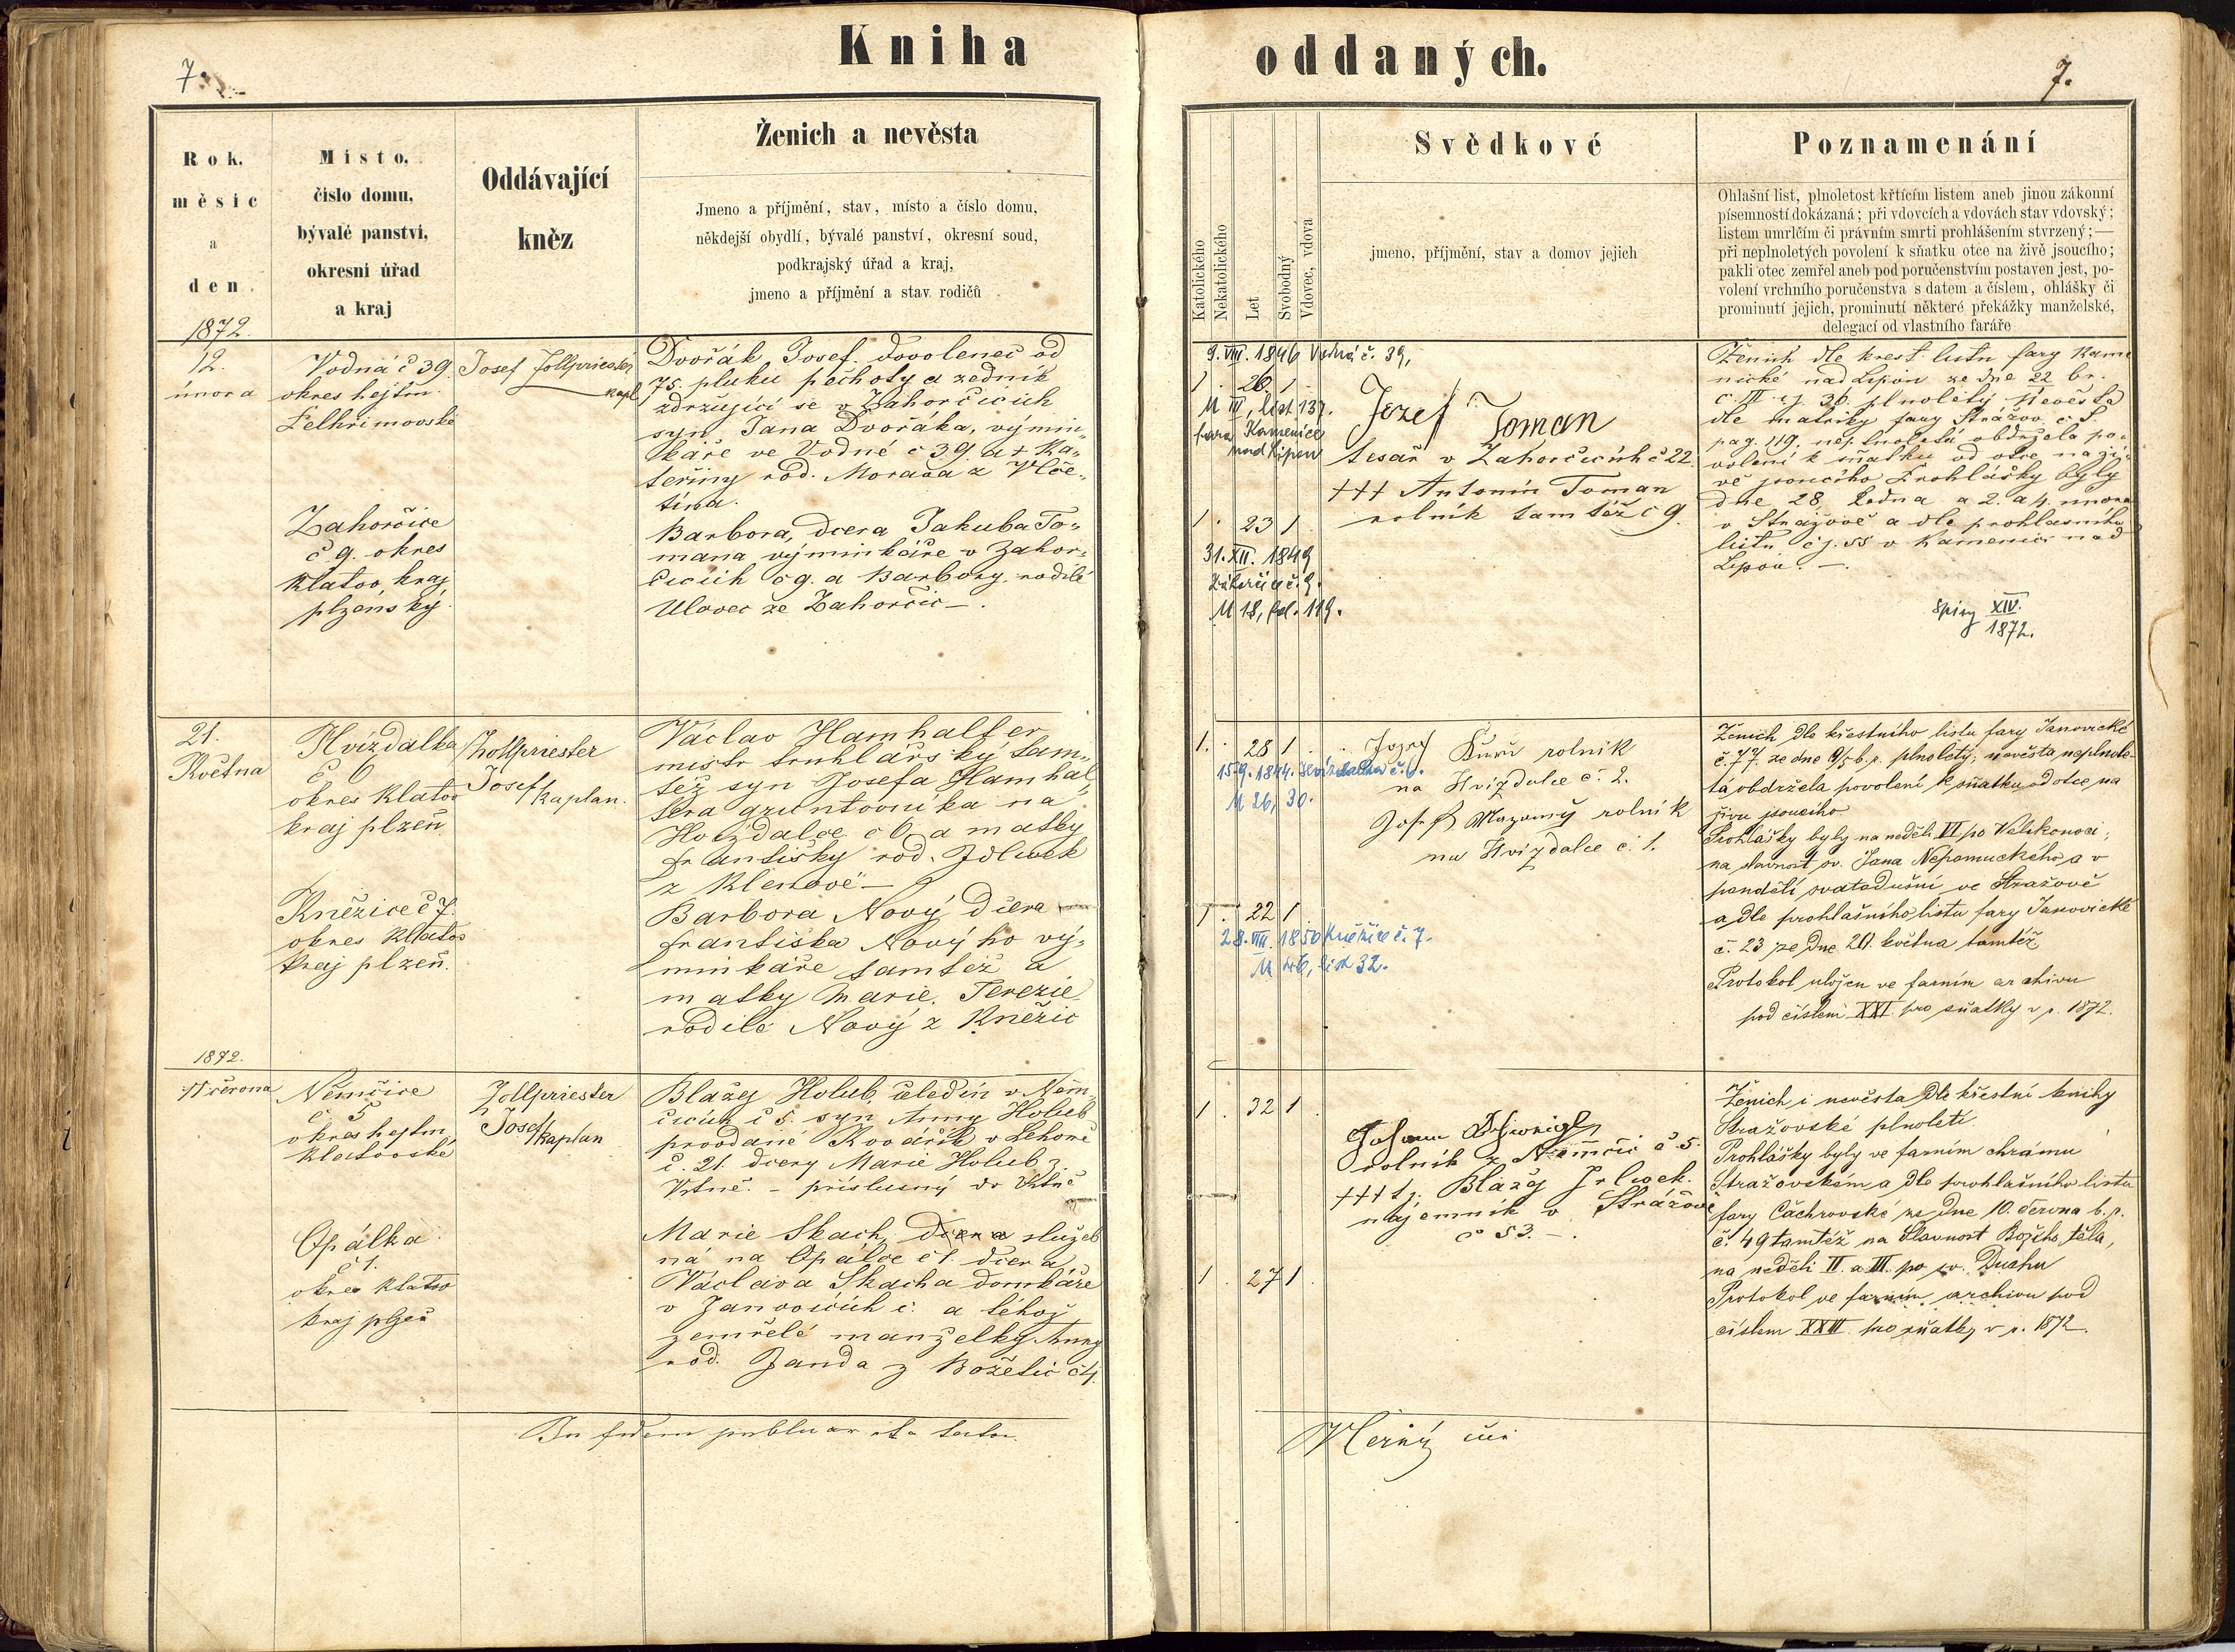 Kniha
7.
Rok,
měsíc
a
den
1872.
Místo,
číslo domu,
bývalé panství,
okresní úřad
a kraj
Oddávající
kněz
Ženich a nevěsta
Jmeno a příjmění, stav, místo a číslo domu,
někdejší obydlí, bývalé panství, okresní soud,
podkrajský úřad a kraj,
jmeno a příjmění a stav rodičů
12.
února
Vodná č 39.
okres hejtm.
Pelhřimovské
Josef Zollpriester
kapl
Dvořák Josef. dovolenec od
75. pluku pěchoty a zedník
zdržující se v Zahorčicích
syn Jana Dvořáka, výmin„
káře ve Vodné č 39. a + Ka„
teřiny rod. Morava z Vče„
tína.
Zahorčice
č 9. okres
Klatov, kraj
plzeňský.
Barbora, dcera Jakuba To„
mana výminkáře v Zahor„
čicích č 9. a Barbory rodilé
Ulovec ze Zahorčic —.
21.
Května
Hvízdalka
č 6
okres Klatov
kraj plzeň
Zollpriester
Josef
kaplan.
Václav Hamhalter
mistr truhlářský tam„
též syn Josefa Hamhal„
tera gruntovníka na
Hvízdalce č 6. a matky
Františky rod. Jdlwek
z Klenové —
Kněžice č 7.
okres Klatov
kraj plzeň.
Barbora Nový, dcera
Františka Nového vý„
minkáře tamtéž a
matky Marie Terezie
rodilé Nový z Kněžic
1872.
17 června
Němčice
č. 5
okres hejtm.
Klatovské
Zollpriester
Josef
kaplan
Blažej Holub, čeledín v Něm„
čicích č 5. syn Anny Holub
provdané Kovářík v Lehomě
č. 21. dcery Marie Holub z
Vrtné. – příslušný do Vrtné
Opálka
č 1.
okres Klatov
kraj plzeň
Marie Skach, dcera služeb
ná na Opálce č 1. dcera
Václava Skacha domkáře
v Janovicích č. a téhož
zemřelé manželky Anny
rod. Janda z Božetic č 4.
In fidem
oddaných.
7.
Katolického
Nekatolického
Let
Svobodný
Vdovec, vdova
Svědkové
jmeno, příjmění, stav a domov jejich
Poznamenání
Ohlašní list, plnoletost křtícím listem aneb jinou zákonní
písemností dokázaná; při vdovcích a vdovách stav vdovský;
listem umrlčím či právním smrti prohlášením stvrzený;—
při neplnoletých povolení k sňatku otce na živě jsoucího;
pakli otec zemřel aneb pod poručenstvím postaven jest, po-
volení vrchního poručenstva s datem a číslem, ohlášky či
prominutí jejich, prominutí některé překážky manželské,
delegací od vlastního faráře
9. VIII. 1846 Vodná č. 39,
1 . 26 1
M IV, list 137.
fara Kamenice
nad Lipou
Jozef Toman
tesař v Zahorčicích č 22
+++ Antonín Toman
rolník tamtéž č 9.
1 . 23 1
31. XII. 1849
Záhorčice č. 9.
M 18, fol. 119.
Ženich dle křest. listu fary Kame
nické nad Lipou ze dne 22 br.
č. IV. čj. 36. plnoletý nevěsta
dle matriky fary Strážov č S.
pag. 119. neplnoletá obdržela po„
volení k sňatku od otce na ži„
vě jsoucího Prohlášky byly
dne 28. Ledna a 2. a 4 února
v Strážově a dle prohlasního
listu čj. 55 v Kamenici nad
Lipou. —.
Spisy XIV.
1872.
1. . 28 1
15. 9. 1844. Hvízdalka č. 6.
M 26, 30.
Jozef rolník
na Hvizdalce č. 2.
Josef Mazaný rolník
na Hvizdalce č. 1.
1 . 22 1
28. VIII. 1850 Kněžice č. 7.
M 46, list 32.
Ženich dle křestního listu fary Janovické
č. 77. ze dne 9/5 b. r. plnoletý; nevěsta neplnole-
tá obdržela povolení k sňatku od otce na
živu jsoucího
Prohlášky byly na neděli VI po Velikonoci;
na slavnost sv. Jana Nepomuckého a v
pondělí svatodušní ve Stražově
a dle prohlašního listu fary Janovické
č. 23 ze dne 20. května tamtéž
Protokol uložen ve farním archivu
pod číslem XXI pro sňatky v r. 1872.
1 . 32 1 .
Johann
rolník z Němčic č 5.
+++ tj. Blažej Jrlwek.
nájemník v Strážově
č 53. —.
1 . 27 1 .
Ženich i nevěsta dle křestní knihy
Stražovské plnoletí.
Prohlášky byly ve farním chrámu
Stražovském a dle prohlašního listu
fary Čachrovské ze dne 10. června b. r.
č. 49 tamtéž na Slavnost Božího těla,
na neděli II. a III. po sv. Duchu
Protokol ve farním archivu pod
číslem XXIII. pro sňatky v r. 1872.